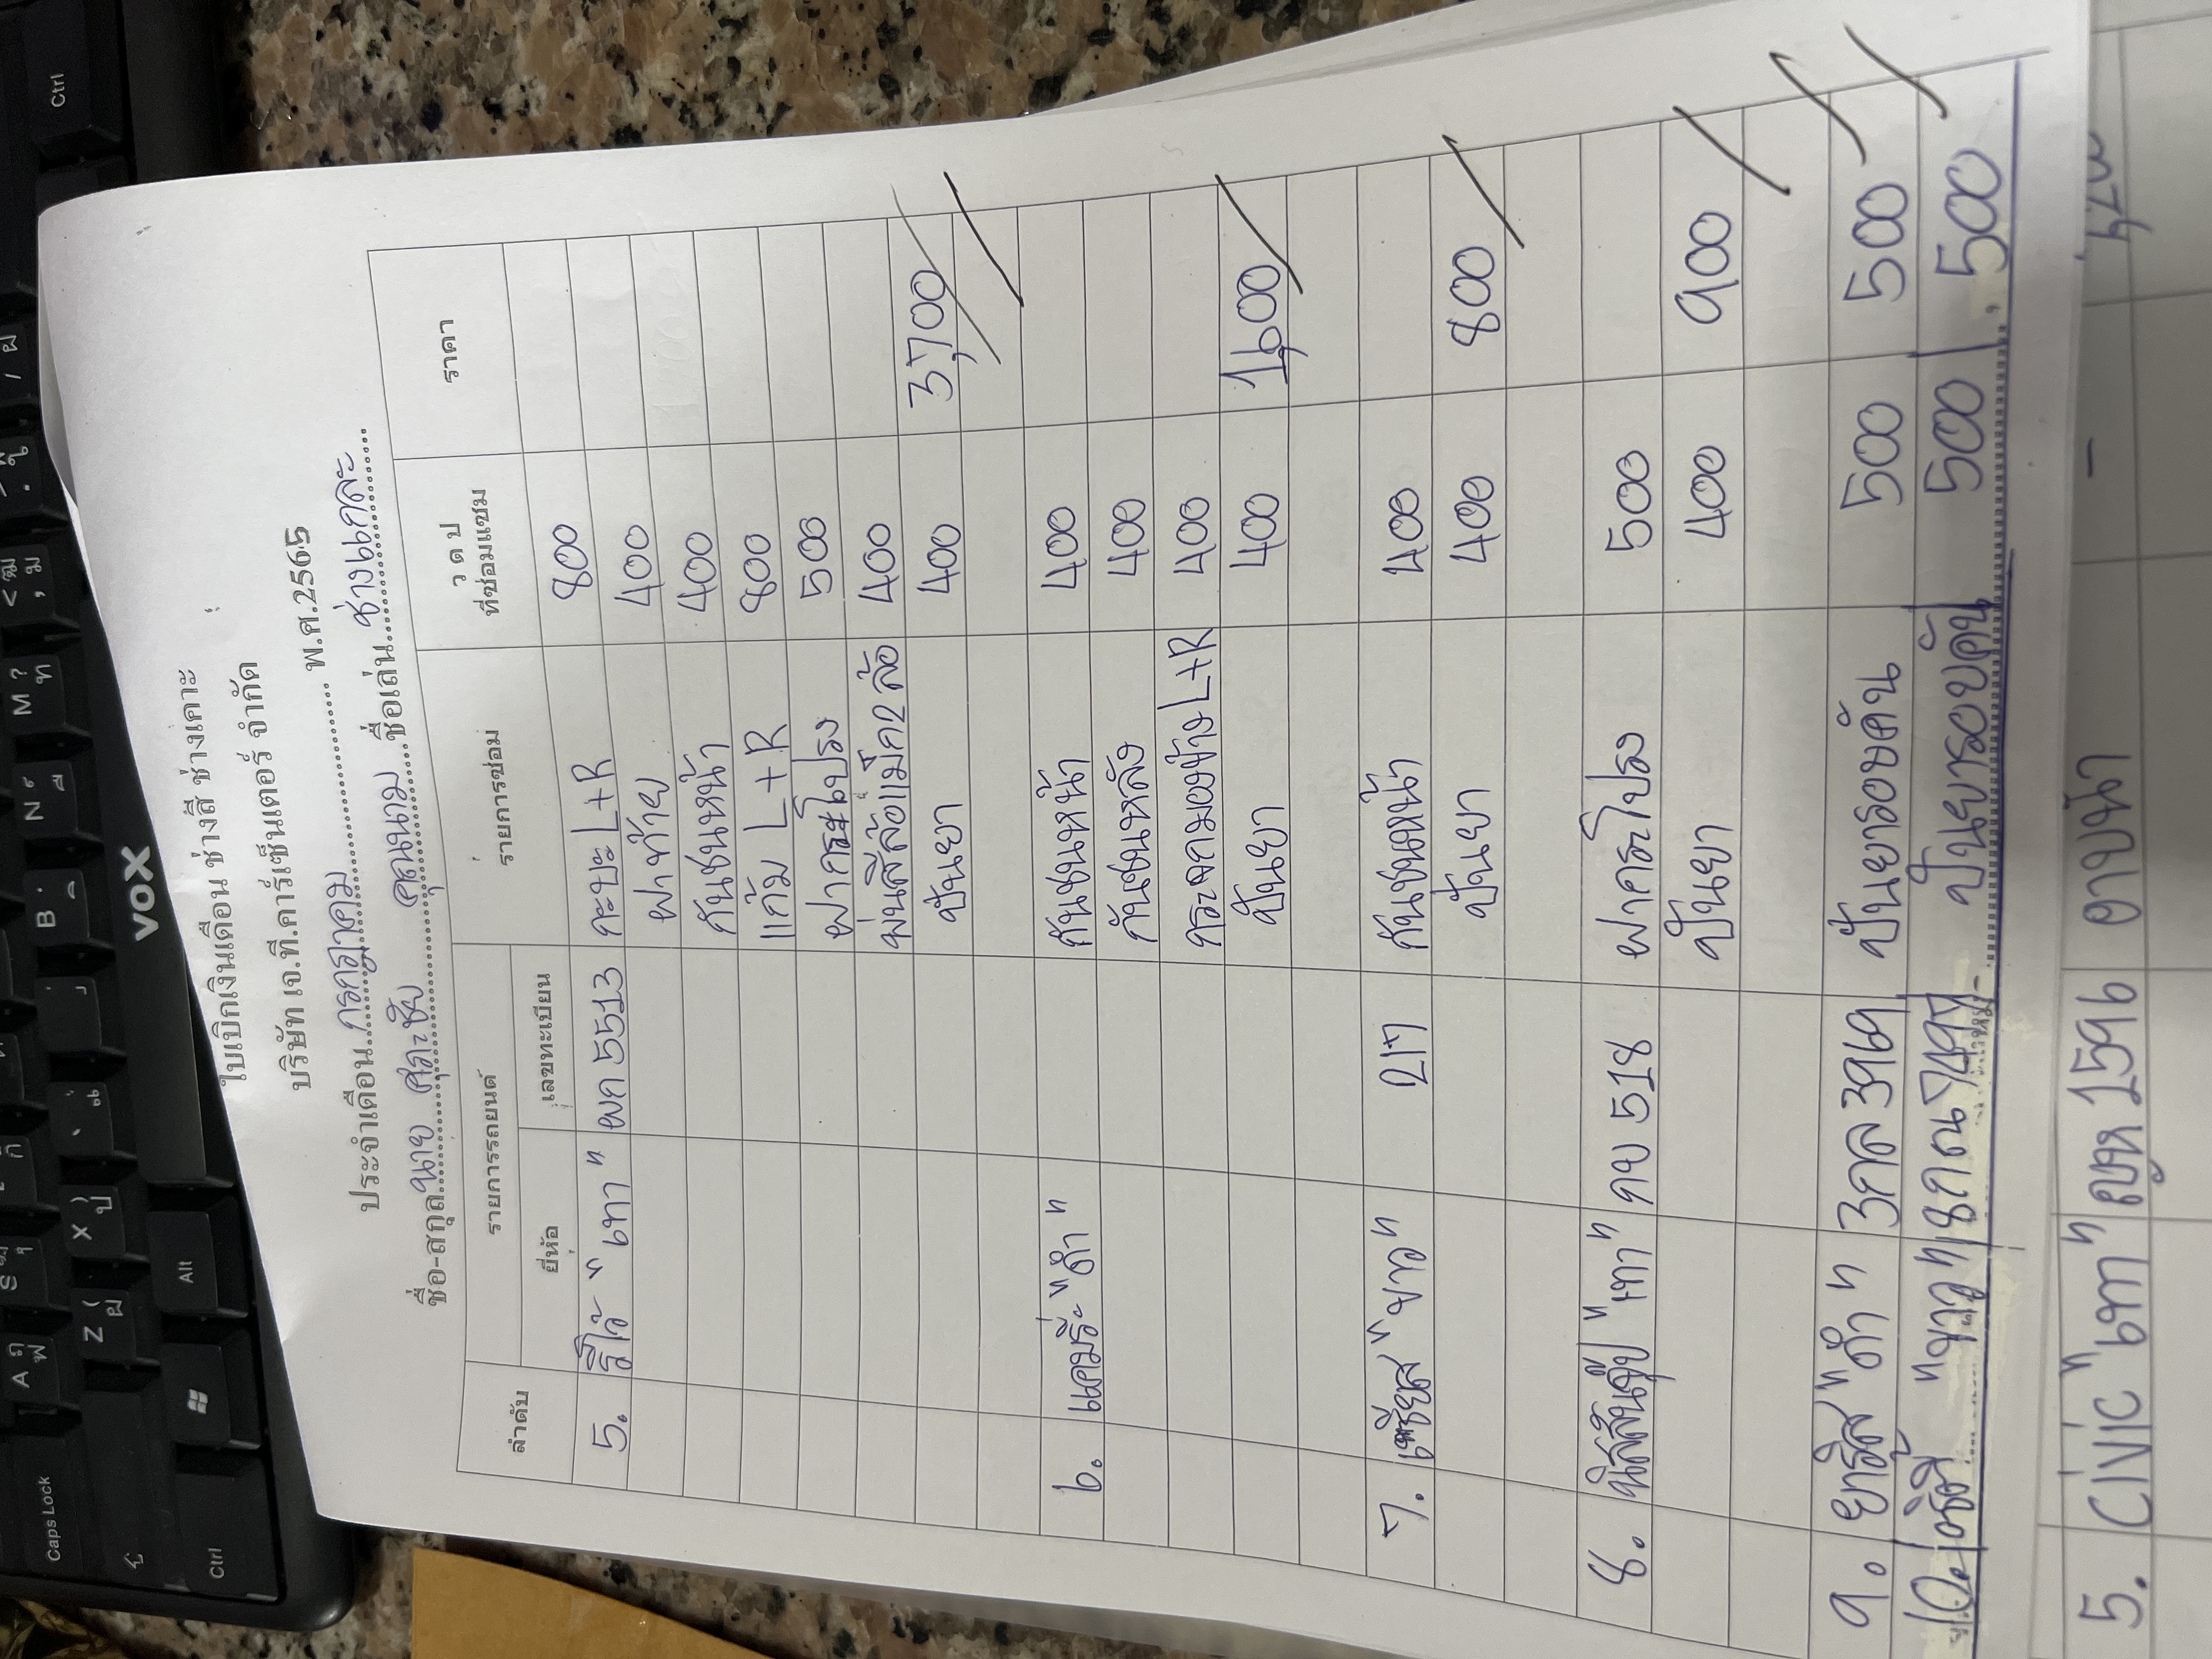 ใบเบิกเงินเดือน ช่างสี ช่างเคาะ
บริษัท เจ.ที.คาร์เซ็นเตอร์ จำกัด
ประจำเดือน กรกฎาคม พ.ศ.2565
ชื่อ-สกุล นาย ชื่อเล่น
ลำดับ รายการรถยนต์ รายการซ่อม ว ด ป ที่ซ่อมแซม ราคา
ยี่ห้อ เลขทะเบียน
5. รีโว้ "เทา" ผก 5513 กะบะ L+R 800
ฝาท้าย 400
กันชนหน้า 400
แก้ม L+R 800
ฝากระโปรง 500
พ่นสีล้อแม็ก 2 ล้อ 400
ปั่นยา 400 3,700
6. แคมรี่ "ดำ" กันชนหน้า 400
กันชนหลัง 400
กระจกมองข้าง L+R 400
ปั่นยา 400 1,600
7. "ขาว" 217 กันชนหน้า 400
ปั่นยา 400 800
8. "เทา" 518 ฝากระโปรง 500
ปั่นยา 400 900
9. "ดำ" 3กล 3969 ปั่นยารอบคัน 500 500
10. "ขาว" 7497 ปั่นยารอบคัน 500 500
5. CIVIC "เทา" 1596 -
VOX
Caps Lock
Ctrl
Alt
A
Z
X
B
N
M
Ctrl